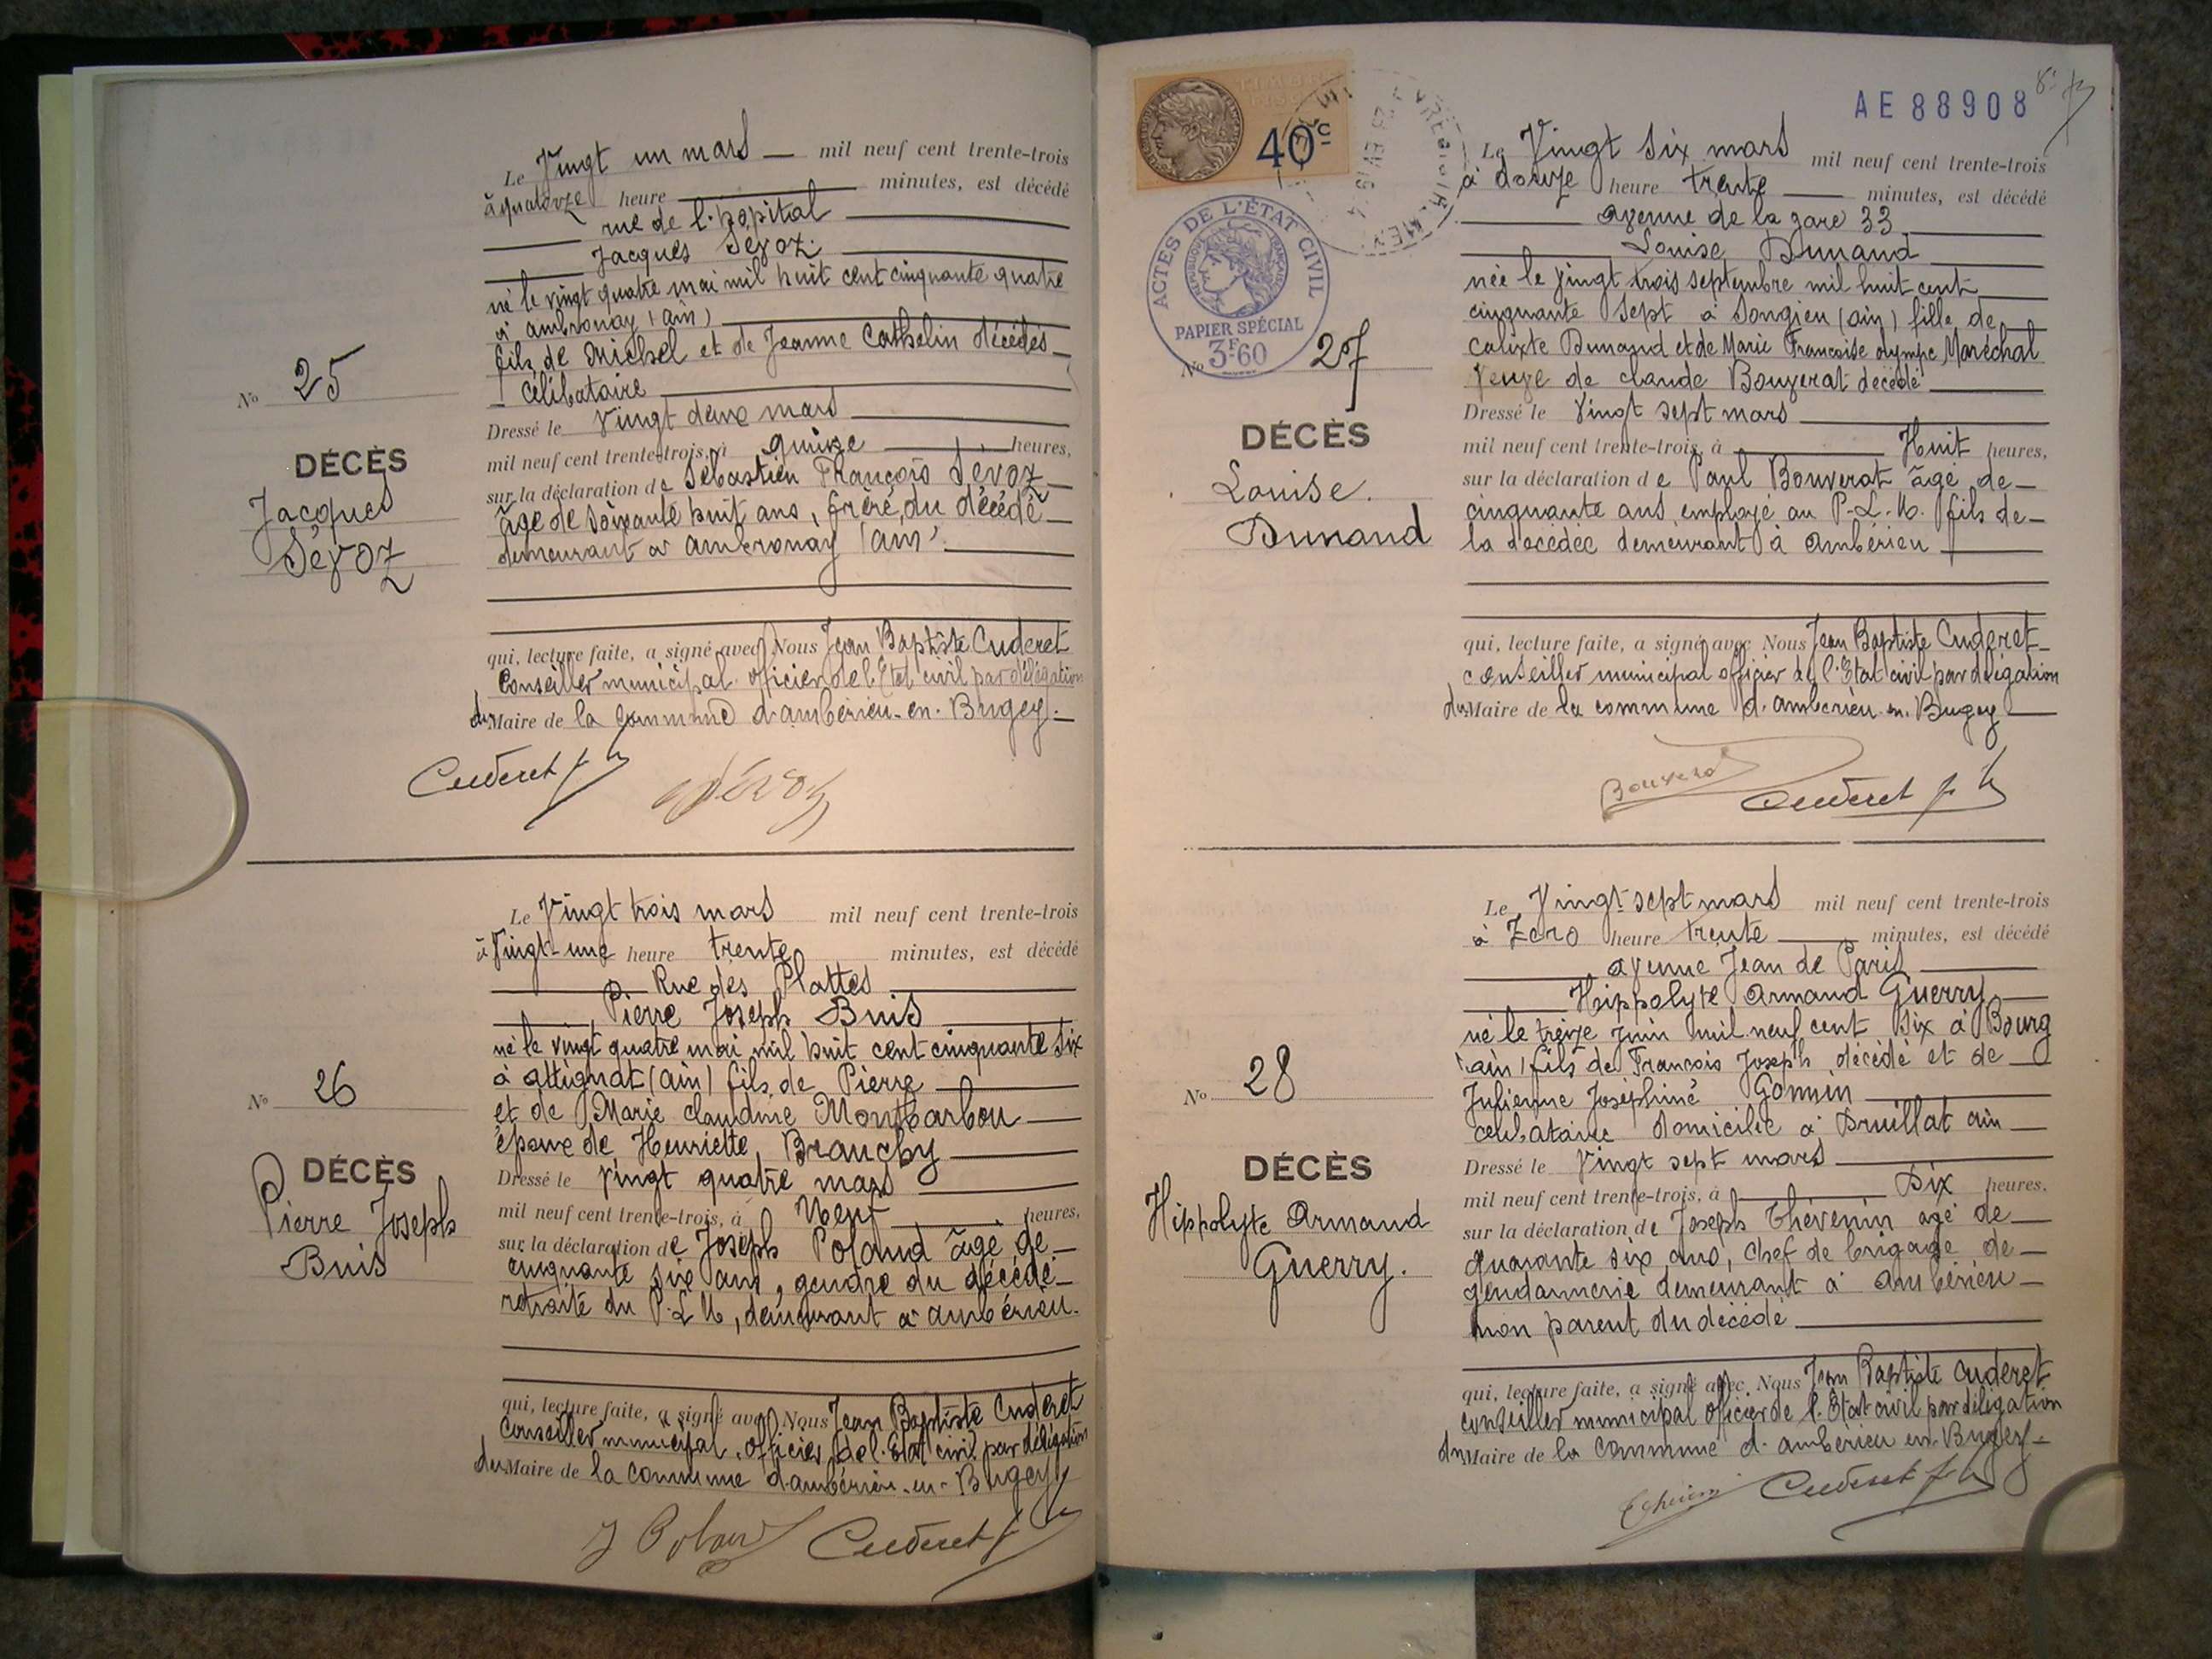 Le Vingt un mars mil neuf cent trente-trois
à quatorze heure minutes, est décédé
rue de l'hôpital
Jacques Sévoz
né le vingt quatre mai mil huit cent cinquante quatre
à ambronay (ain)
fils de Michel et de Jeanne Cathelin décédés
célibataire
Dressé le Vingt deux mars
mil neuf cent trente-trois, à quinze heures,
sur la déclaration de Sébastien François Sévoz
âgé de soixante huit ans, frère du décédé
demeurant à ambronay (ain)
qui, lecture faite, a signé avec Nous Jean Baptiste Cuderet
Conseiller municipal officier de l'Etat civil par délégation
du Maire de la commune d'ambérieu-en-Bugey.
N° 25
DÉCÈS
Jacques
Sévoz
Cuderet
Sévoz
Le Vingt trois mars mil neuf cent trente-trois
à Vingt-une heure trente minutes, est décédé
Rue des Plattes
Pierre Joseph Buis
né le vingt quatre mai mil huit cent cinquante six
à attignat (ain) fils de Pierre
et de Marie claudine Montbarbon
époux de Henriette Branchy
Dressé le vingt quatre mars
mil neuf cent trente-trois, à Neuf heures,
sur la déclaration de Joseph Poland âgé de
cinquante six ans, gendre du décédé
retraité du P.L.M, demeurant à ambérieu.
qui, lecture faite, a signé avec Nous Jean Baptiste Cuderet
Conseiller municipal, officier de l'Etat civil par délégation
du Maire de la commune d'ambérieu-en-Bugey
N° 26
DÉCÈS
Pierre Joseph
Buis
Cuderet
AE 88908
40c
ACTES DE L'ÉTAT CIVIL
PAPIER SPÉCIAL
3F60
Le Vingt six mars mil neuf cent trente-trois
à douze heure trente minutes, est décédé
avenue de la gare 33
Louise Dunand
née le vingt trois septembre mil huit cent
cinquante sept à Songieu (ain) fille de
calixte Dunand et de Marie Françoise olympe Maréchal
veuve de claude Bouverat décédé
Dressé le Vingt sept mars
mil neuf cent trente-trois, à Huit heures,
sur la déclaration de Paul Bouverat âgé de
cinquante ans employé au P.L.M. fils de
la décédée demeurant à Ambérieu
qui, lecture faite, a signé avec Nous Jean Baptiste Cuderet
conseiller municipal officier de l'Etat civil par délégation
du Maire de la commune d'ambérieu en Bugey
N° 27
DÉCÈS
Louise.
Dunand
Bouverat
Cuderet
Le Vingt-sept mars mil neuf cent trente-trois
à Zéro heure trente minutes, est décédé
avenue Jean de Paris
Hippolyte Armand Guerry
né le treize juin mil neuf cent six à Bourg
(ain) fils de François Joseph décédé et de
Julienne Joséphine Gonnin
célibataire domicilié à Druillat ain
Dressé le Vingt sept mars
mil neuf cent trente-trois, à Dix heures,
sur la déclaration de Joseph Thévenin âgé de
quarante six ans, chef de brigade de
gendarmerie demeurant à Ambérieu
non parent du décédé
qui, lecture faite, a signé avec Nous Jean Baptiste Cuderet
conseiller municipal officier de l'Etat civil par délégation
du Maire de la commune d'ambérieu en Bugey
N° 28
DÉCÈS
Hippolyte Armand
Guerry.
Cuderet